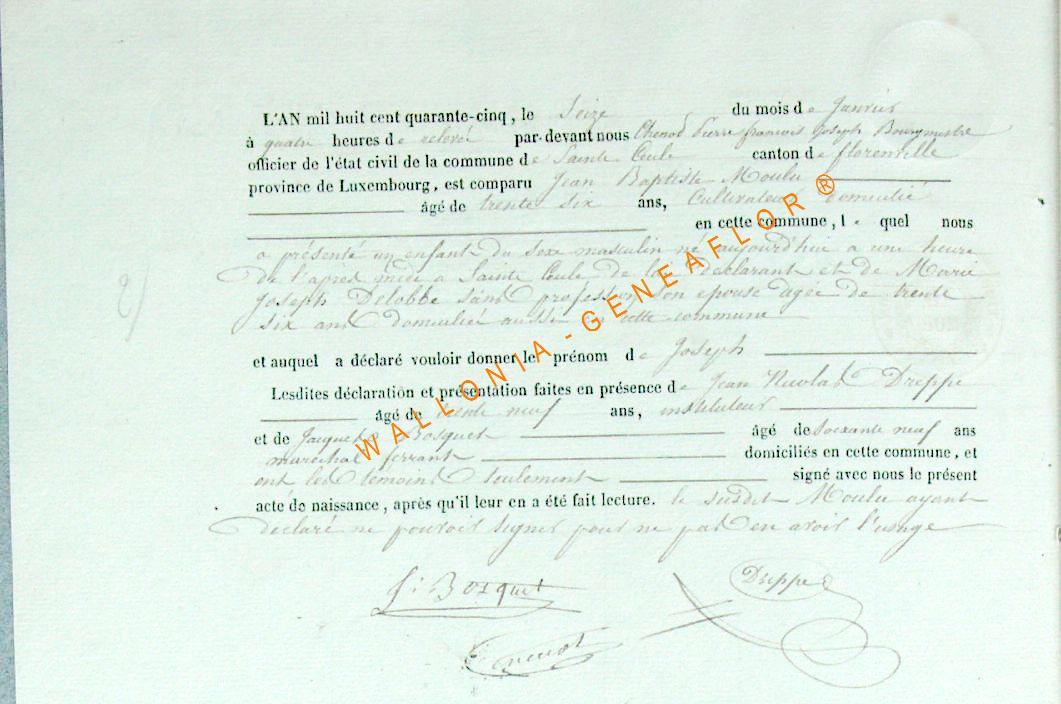 L'AN mil huit cent quarante-cinq, le Seize du mois de Janvier
à quatre heures de relevé par-devant nous Chenot Pierre françois Joseph Bourgmestre
officier de l'état civil de la commune de Sainte Cecile canton de florenville
province de Luxembourg, est comparu Jean Baptiste Moulu
âgé de trente six ans, Cultivateur domicilié
en cette commune, le quel nous
a présenté un enfant du sexe masculin né aujourd'hui a une heure
De l'apres midi a Sainte Cecile de lui declarant et de Marie
Joseph Delobbe sans profession son epouse agée de trente
six ans domiciliée aussi en cette commune
et auquel a déclaré vouloir donner le prénom de Joseph
Lesdites déclaration et présentation faites en présence de Jean Nicolas Dreppe
âgé de trente neuf ans, instituteur
et de Jacques Bosquet âgé de soixante neuf ans
marechal ferrant domiciliés en cette commune, et
ont les temoins seulement signé avec nous le présent
acte de naissance, après qu'il leur en a été fait lecture. le susdit Moulu ayant
declaré ne pouvoir signer pour ne pas en avoir l'usage
J: Bosquet Dreppe
Chenot
2)
WALLONIA-GENEAFLOR®